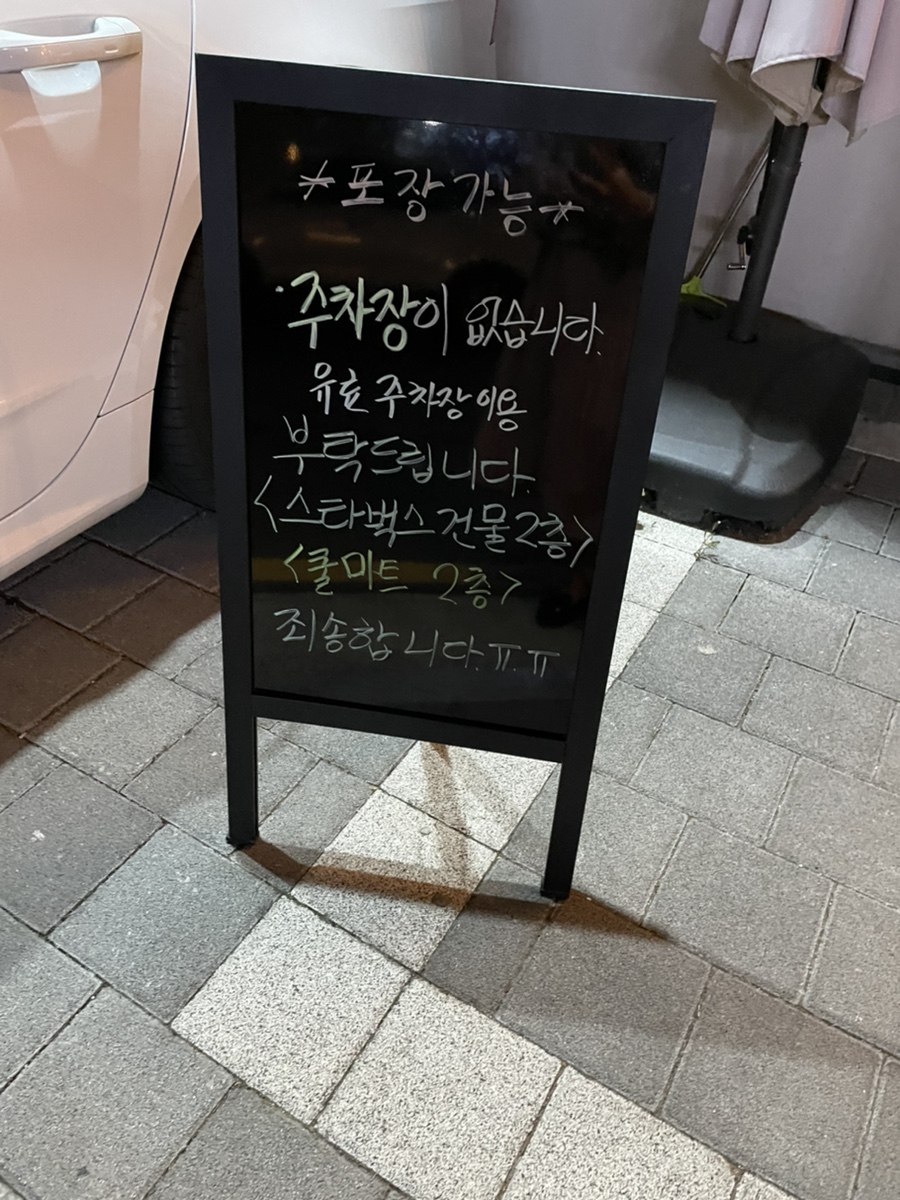 *포장 가능*
·주차장이 없습니다.
유효 주차장 이용
부탁드립니다.
<스타벅스 건물 2층>
<쿨마트 2층>
죄송합니다.ㅠ.ㅠ